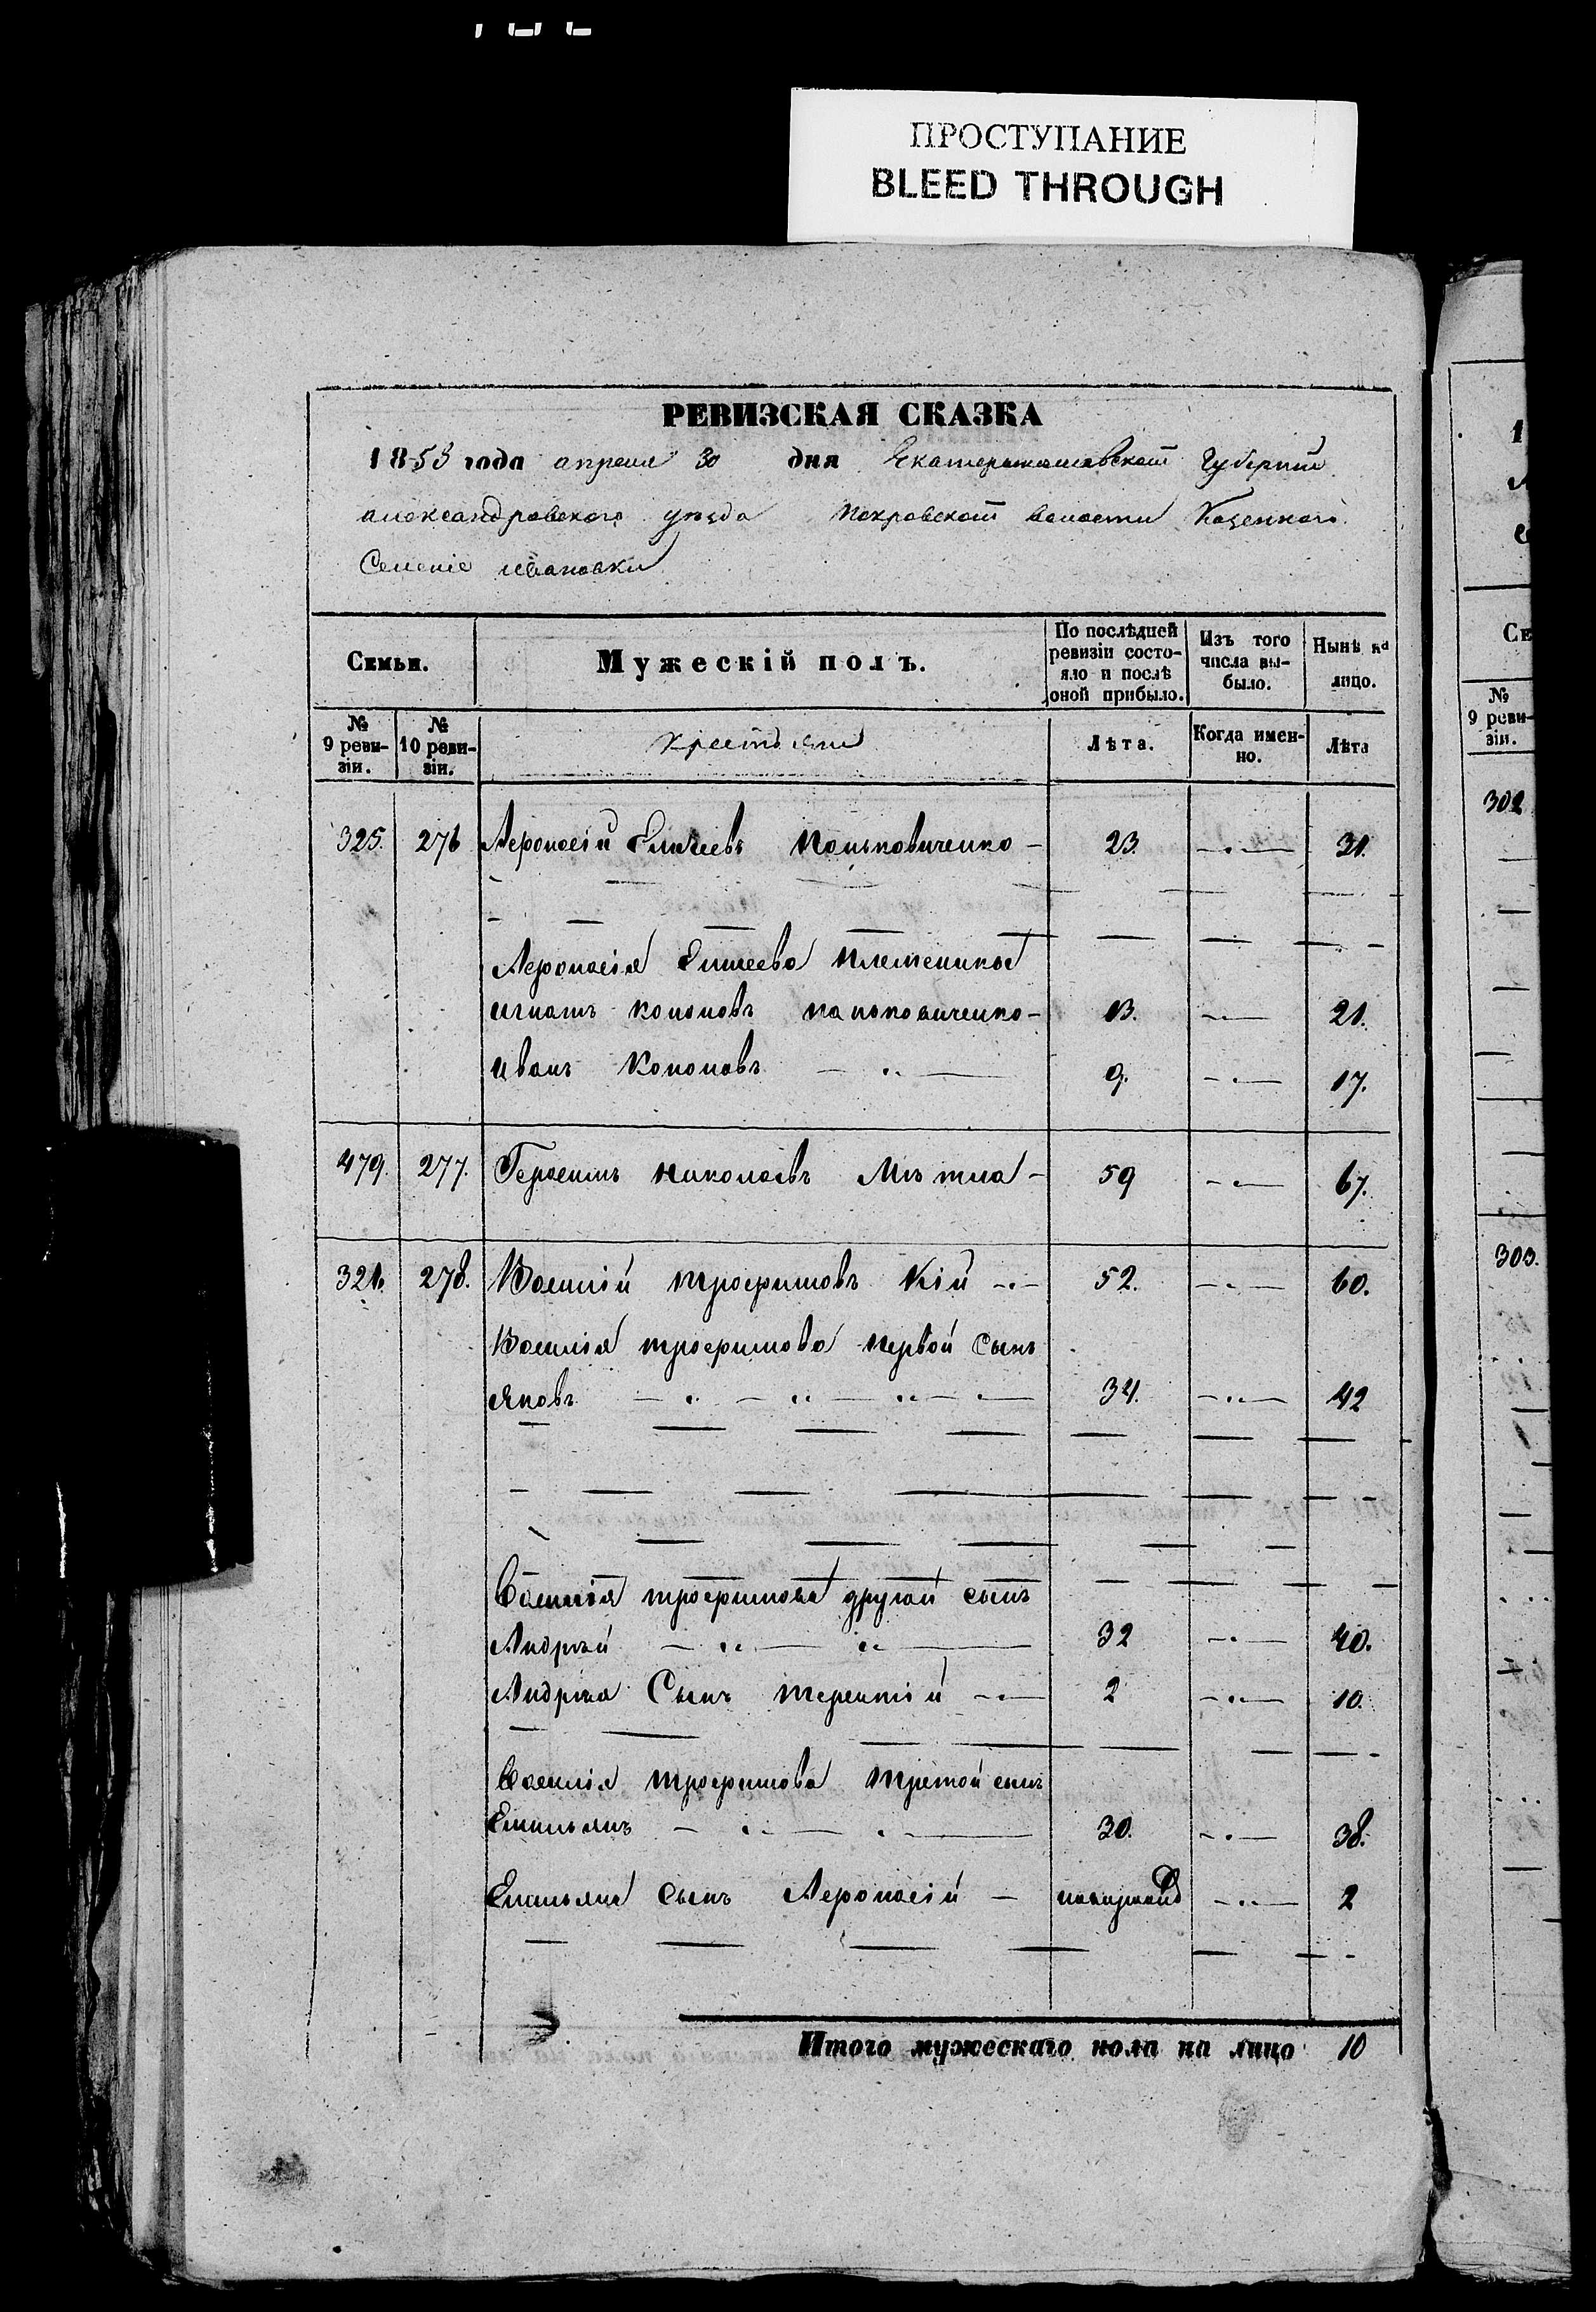 ПРОСТУПАНИЕ
BLEED THROUGH
РЕВИЗСКАЯ СКАЗКА
1858 года апреля 30 дня Екатеринославской Губернии
александровского уезда Покровской волости Казенного
Селение ивановки
Семьи. Мужескій полъ. По послѣдней ревизіи состояло и послѣ оной прибыло. Изъ того числа выбыло. Нынѣ на лицо.
№ 9 ревизіи. № 10 ревизіи. Крестьяне Лѣта. Когда именно. Лѣта
325. 276 Афонасій Елисеевъ 23. 31.
Афонасія Елисеева племеники
игнатъ кононовъ 13. 21.
иванъ Кононовъ 9. 17.
479. 277. Герасимъ николаевъ Мѣтла 59 67.
321. 278. Василій трофимовъ Кій 52. 60.
Василія трофимова первой сынъ
Яковъ 34. 42
Василія трофимова другой сынъ
Андрѣй 32 40.
Андрѣя Сынъ терентій 2 10.
Василія трофимова третой сынъ
Емельянъ 30. 38.
Емельяна сынъ Афонасій 2
Итого мужескаго пола на лицо 10
№ 9 ревизіи.
302
303.